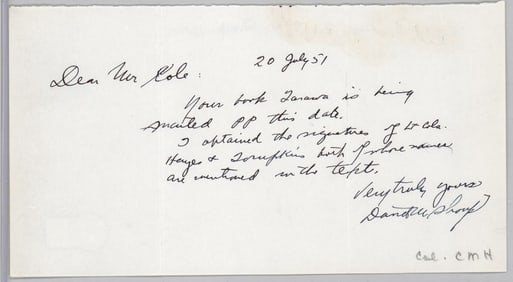 20 July 51
Dear Mr Cole:
Your book Tarawa is being
mailed PP this date.
I obtained the signatures of Lt Cols.
Hays & Tompkins both of whose names
are mentioned in the text.
Very truly yours
David M. Shoup
Col. C M H